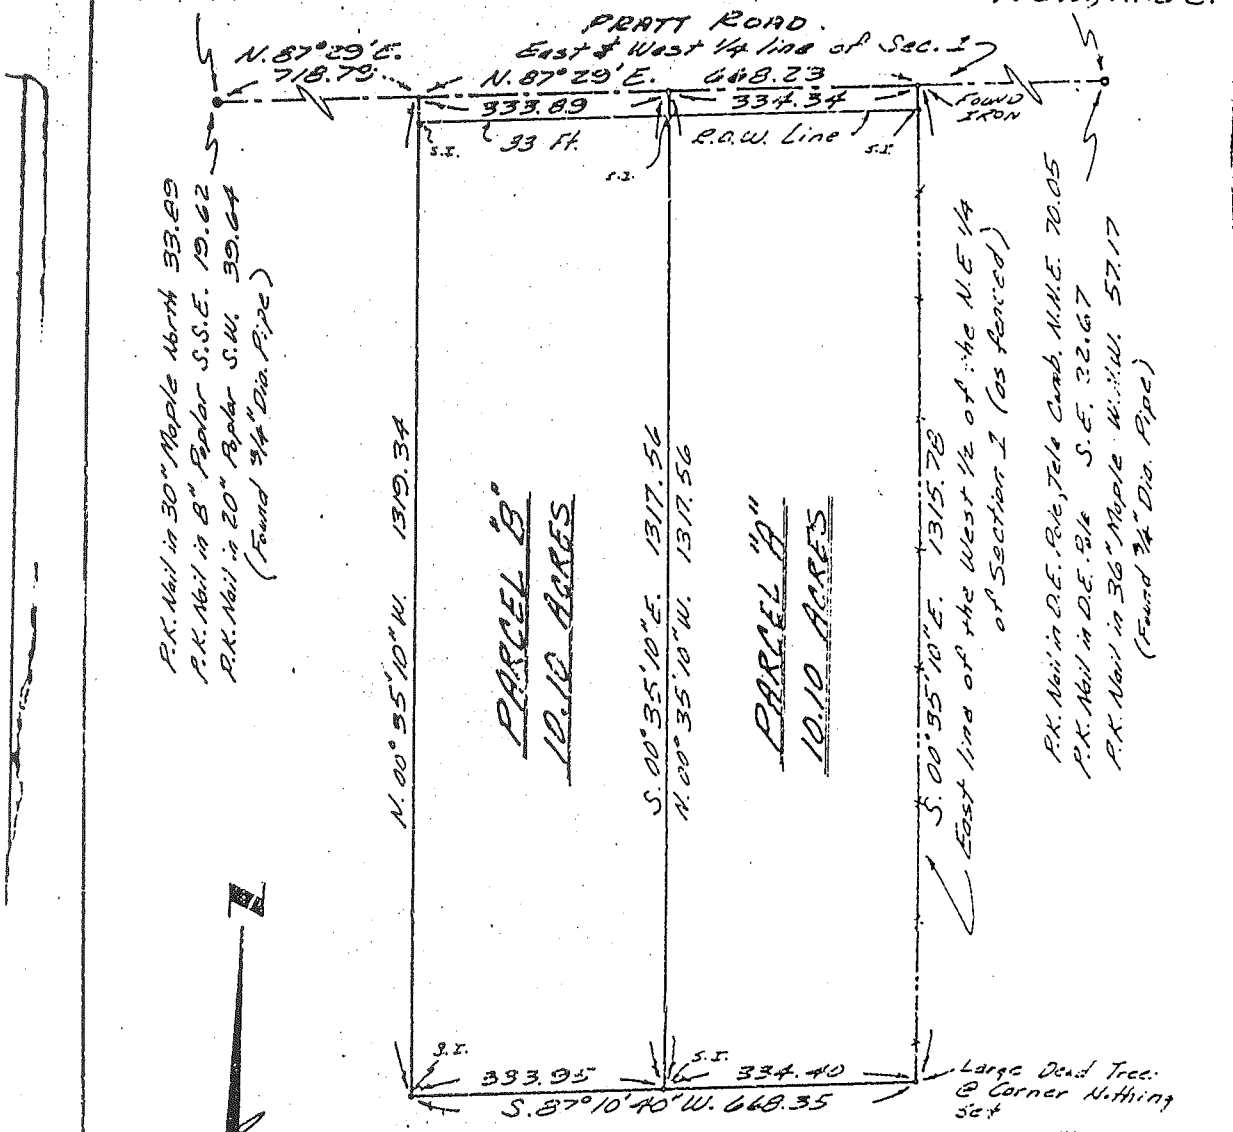 PRATT ROAD.
East & West 1/4 line of Sec. 1
N. 87° 29' E.
718.79
N. 87° 29' E. 668.23
333.89
334.34
FOUND
IRON
33 Ft.
R.O.W. Line
S.I.
S.I.
S.I.
P.K. Nail in 30" Maple North 33.89
P.K. Nail in 8" Poplar S.S.E. 19.62
P.K. Nail in 20" Poplar S.W. 39.64
(Found 3/4" Dia. Pipe)
N. 00° 35' 10" W. 1319.34
PARCEL "B"
10.10 ACRES
S. 00° 35' 10" E. 1317.56
N. 00° 35' 10" W. 1317.56
PARCEL "A"
10.10 ACRES
S. 00° 35' 10" E. 1315.78
East line of the West 1/2 of the N.E 1/4
of Section 1 (as fenced)
P.K. Nail in D.E. Pole, Tele Comb. N.N.E. 70.05
P.K. Nail in D.E. Pole S.E. 32.67
P.K. Nail in 36" Maple W.N.W. 57.17
(Found 3/4" Dia. Pipe)
S.I.
333.95
S.I.
334.40
S. 87° 10' 40" W. 668.35
Large Dead Tree
@ Corner Nothing
set